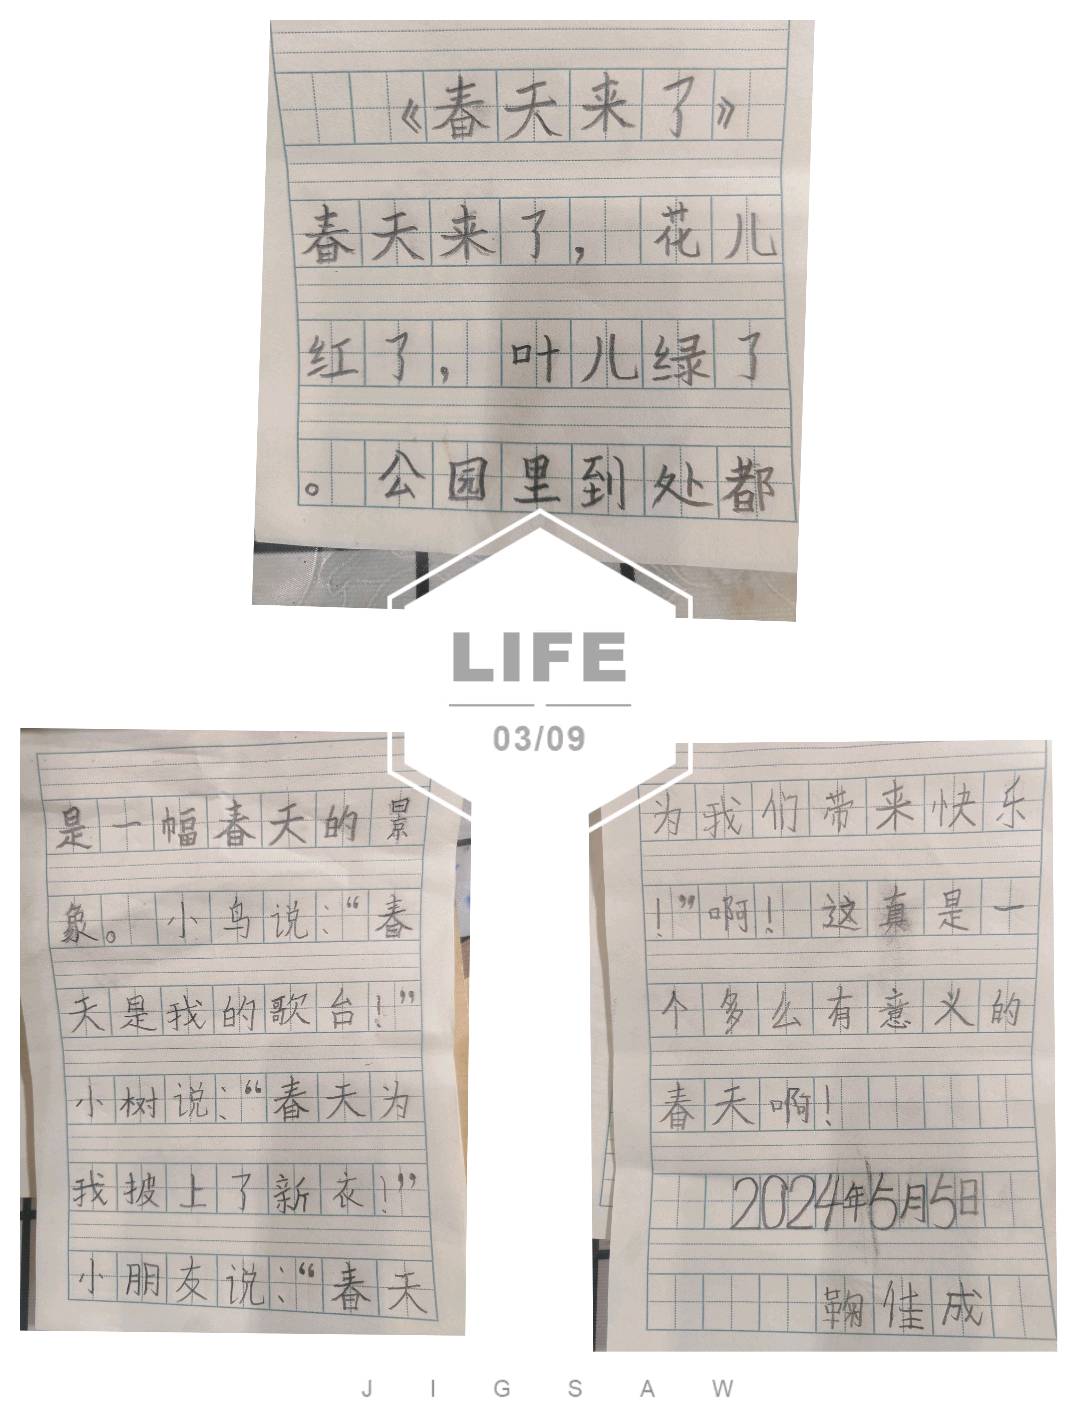 《春天来了》
春天来了，花儿
红了，叶儿绿了
。公园里到处都
LIFE
03/09
是一幅春天的景
象。小鸟说：“春
天是我的歌台！”
小树说：“春天为
我披上了新衣！”
小朋友说：“春天
为我们带来快乐
！”啊！这真是一
个多么有意义的
春天啊！
2024年5月5日
鞠佳成
JIGSAW